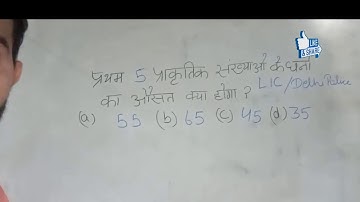 LIKE & SHARE
प्रथम 5 प्राकृतिक संख्याओं के घनों
का औसत क्या होगा? LIC/Delhi Police
(a) 55 (b) 65 (c) 45 (d) 35